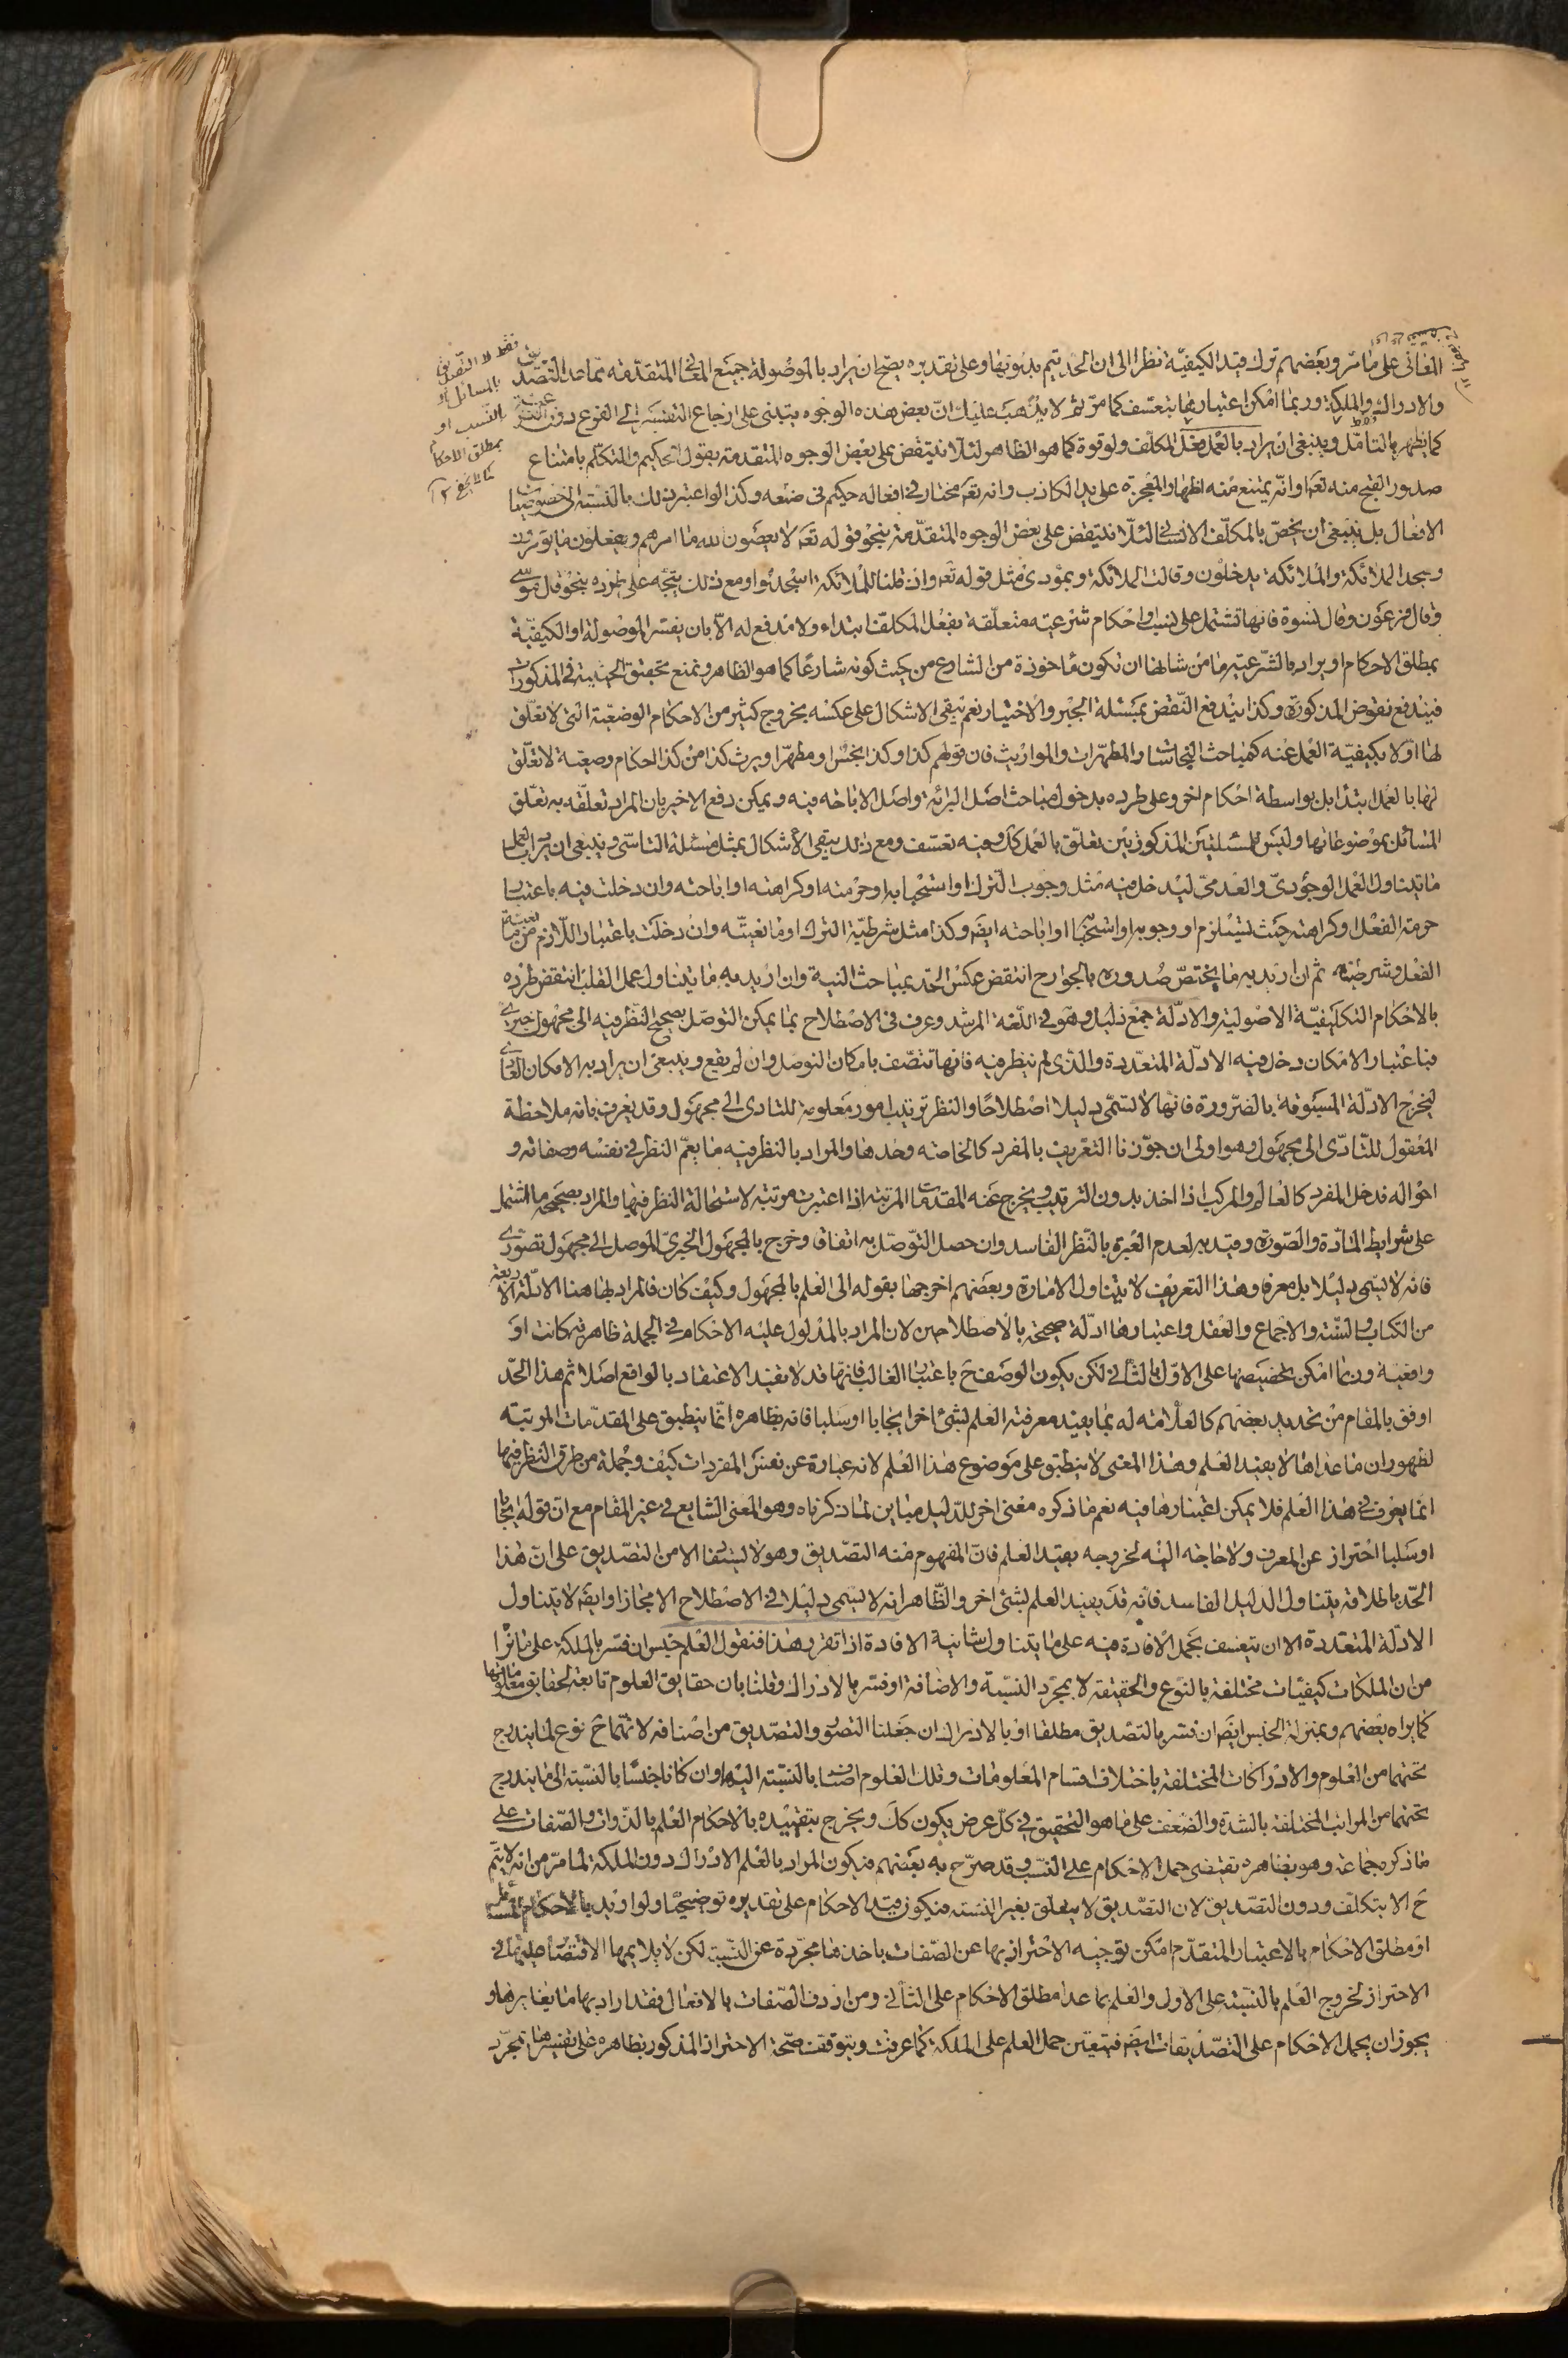 المعانى على ما مرّ وبعضهم ترك قيد الكيفيّة نظرا الى ان الحد يتم بدونها وعلى تقديره يصحّ ان يراد بالموصولة جميع المعانى المتقدّمة ممّا عدا التصديق
والادراك والملكة وربما امكن اعتبارها بتعسّف كما مرّ ثم لا يذهب عليك انّ بعض هذه الوجوه يبتنى على ارجاع التفسير الى الفرع دون
كما يظهر بالتامّل وينبغى ان يراد بالعمل عمل المكلّف ولو قوة كما هو الظاهر لئلّا ينتقض على بعض الوجوه المتقدمة بقول الحكيم والمتكلّم بامتناع
صدور القبح منه تعه وانّه يمتنع منه اظهار المعجزة على يد الكاذب وانه تعه مختار في افعاله حكيم فى صنعه وكذا لو اعتبر ذلك بالنسبة الى خصوصيات
الافعال بل ينبغى ان يخصّ بالمكلّف الانسانى لئلّا ينتقض على بعض الوجوه المتقدّمة بنحو قوله تعه لا يعصون الله ما امرهم ويفعلون ما يؤمرون
وسجد الملائكة والملائكة يدخلون وقالت الملائكة وبمؤدى مثل قوله تعه واذ قلنا للملائكة اسجدوا ومع ذلك يتجه على طرده بنحو قال موسى
وقال فرعون وقال نسوة فانها تشتمل على نسب او احكام شرعيته متعلّقة بفعل المكلّف ابتداء ولا مدفع له الّا بان يفسر الموصولة او الكيفيّة
بمطلق الاحكام او يراد بالشرعيّة ما من شانها ان تكون ماخوذة من الشارع من حيث كونه شارعًا كما هو الظاهر وتمنع تحقق الحيثية فى المذكورات
فيندفع نقوض المذكورة وكذا يندفع النّقض بمسئلة الجبر والاختيار نعم يبقى الاشكال على عكسه بخروج كثير من الاحكام الوضعيّة التى لا تعلّق
لها اوّلا بكيفيّة العمل عنه كمباحث النجاسات والمطهّرات والمواريث فان قولهم كذا وكذا نجس او مطهّر او يرث كذا من كذا احكام وضعيّة لا تعلّق
لها بالعمل ابتدا بل بواسطة احكام اخر وعلى طرده بدخول مباحث اصل البرائة واصل الاباحة فيه ويمكن دفع الاخير بان المراد تعلّقه به تعلّق
المسائل بموضوعاتها وليس للمسئلتين المذكورتين تعلّق بالعمل كك وفيه تعسّف ومع ذلك يبقى الاشكال بمثل مسئلة التاسّى وينبغى ان يراد بالعمل
ما يتناول العمل الوجودىّ والعدمىّ ليدخل فيه مثل وجوب الترك او استحبابه او حرمته او كراهته او اباحته وان دخلت فيه باعتبار
حرمة الفعل او كراهته حيث يستلزم او وجوبه او استحبابه او اباحته ايضه وكذا مثل شرطيّة الترك او مانعيّته وان دخلت باعتبار اللّازم من
الفعل وشرطيته ثم ان اريد به ما يختصّ صدوره بالجوارح انتقض عكس الحد بمباحث النية وان اريد به ما يتناول عمل القلب انتقض طرده
بالاحكام التكليفيّة الاصولية والادلّة جمع دليل وهو فى اللّغة المرشد وعرف فى الاصطلاح بما يمكن التوصّل بصحيح النّظر فيه الى مجهول خبرى
فباعتبار الامكان دخل فيه الادلّة المتعدّدة والذى لم ينظر فيه فانها تتصف بامكان التوصّل وان لم يقع وينبغى ان يراد به الامكان العامّ
ليخرج الادلّة المسبوقة بالضرورة فانها لا تسمّى دليلا اصطلاحًا والنظر ترتيب امور معلومة للتادى الى مجهول وقد يعرف بانه ملاحظة
المعقول للتّادّى الى مجهول وهو اولى ان جوّزنا التعريف بالمفرد كالخاصّه وحدها والمراد بالنظر فيه ما يعمّ النظر فى نفسه وصفاته و
احواله فدخل المفرد كالعالم والمركب اذا اخذ بدون الترتيب ويخرج عنه المقدمات المرتبة اذا اعتبرت مرتبة لاستحالة النظر فيها والمراد بصحيحه ما اشتمل
على شرايط المادّة والصّورة وقيد به لعدم العبرة بالنّظر الفاسد وان حصل التّوصّل به اتفاقا وخرج بالمجهول الخبرىّ الموصل الى مجهول تصوّرى
فانه لا يسمّى دليلا بل معرفا وهذا التعريف لا يتناول الامارة وبعضهم اخرجها بقوله الى العلم بالمجهول وكيف كان فالمراد بها هنا الادلّة الاربعة
من الكتاب والسّنة والاجماع والعقل واعتبارها ادلّة صحيحة بالاصطلاحين لان المراد بالمدلول عليه الاحكام فى الجملة ظاهرية كانت او
واقعية وربما امكن تخصيصها على الاوّل بالثانى لكن يكون الوصف ح باعتبار الغالب فانها قد لا تفيد الاعتقاد بالواقع اصلا ثم هذا الحّد
اوفق بالمقام من تحديد بعضهم كالعلّامة له بما يفيد معرفته العلم لشئ اخر ايجابا او سلبا فانه بظاهره انّما ينطبق على المقدّمات المرتبة
لظهور ان ما عداها لا يفيد العلم وهذا المعنى لا ينطبق على موضوع هذا العلم لانه عبارة عن نفس المفردات كيف وجملة من طرق النظر فيها
انما يعرف فى هذا العلم فلا يمكن اعتبارها فيه نعم ما ذكره معنى اخر للدّليل مباين لما ذكرناه وهو المعنى الشايع فى غير المقام مع ان قوله ايجابا
او سلبا احتراز عن المعرف ولا حاجة اليه لخروجه بقيد العلم فانّ المفهوم منه التصديق وهو لا يستفاد الا من التصديق على انّ هذا
الحّد باطلاقه يتناول الدليل الفاسد فانّه قد يفيد العلم بشئ اخر والظّاهر انه لا يسمى دليلا فى الاصطلاح الا مجازا وايضه لا يتناول
الادلّة المتعددة الا ان يتعسف بحمل الافادة فيه على ما يتناول شانية الافادة اذا تقرر هذا فنقول العلم جنس ان فسّر بالملكة على ما نراه
من ان الملكات كيفيّات مختلفة بالنوع والحقيقة لا بمجرّد النسبة والاضافة او فسّر بالادراك وقلنا بان حقايق العلوم تابعة لحقايق معلوماتها
كما يراه بعضهم وبمنزلة الجنس ايضه ان فسّر بالتصديق مطلقا او بالادراك ان جعلنا التصوّر والتصّديق من اصنافه لانّهما ح نوع لما يندرج
تحتهما من العلوم والادراكات المختلفة باختلاف اقسام المعلومات وتلك العلوم اصنافا بالنسبة اليها وان كانا جنسًا بالنسبة الى ما يندرج
تحتهما من المراتب المختلفة بالشدة والضعف على ما هو التحقيق فى كلّ عرض يكون كك ويخرج بتقييده بالاحكام العلم بالذّوات والصّفات على
ما ذكره جماعة وهو بظاهره يقتضى حمل الاحكام على النّسب وقد صرّح به بعضهم فيكون المراد بالعلم الادراك دون الملكة لما مرّ من انه لا يتمّ
ح الا بتكلّف ودون التصّديق لان التصّديق لا يتعلّق بغير النسبة فيكون قيد الاحكام على تقديره توضيحيّا ولو اريد بالاحكام المسائل
او مطلق الاحكام بالاعتبار المتقدّم امكن توجيه الاحتراز بها عن الصّفات باخذها مجرّدة عن النّسبة لكن لا يلايمها الاقتصار عليها فى
الاحتراز لخروج العلم بالنّسبة على الاول والعلم بما عدا مطلق الاحكام على الثانى ومن اردف الصّفات بالافعال فقد اراد بها ما يغايرها و
يجوز ان يحمل الاحكام على التّصديقات ايضه فيتعيّن حمل العلم على الملكة كما عرفت ويتوقف صحّة الاحتراز المذكور بظاهره على تفسيرها بمجرّد
فقط لا التصديق
بالمسائل او
النسب او
بمطلق الاحكام